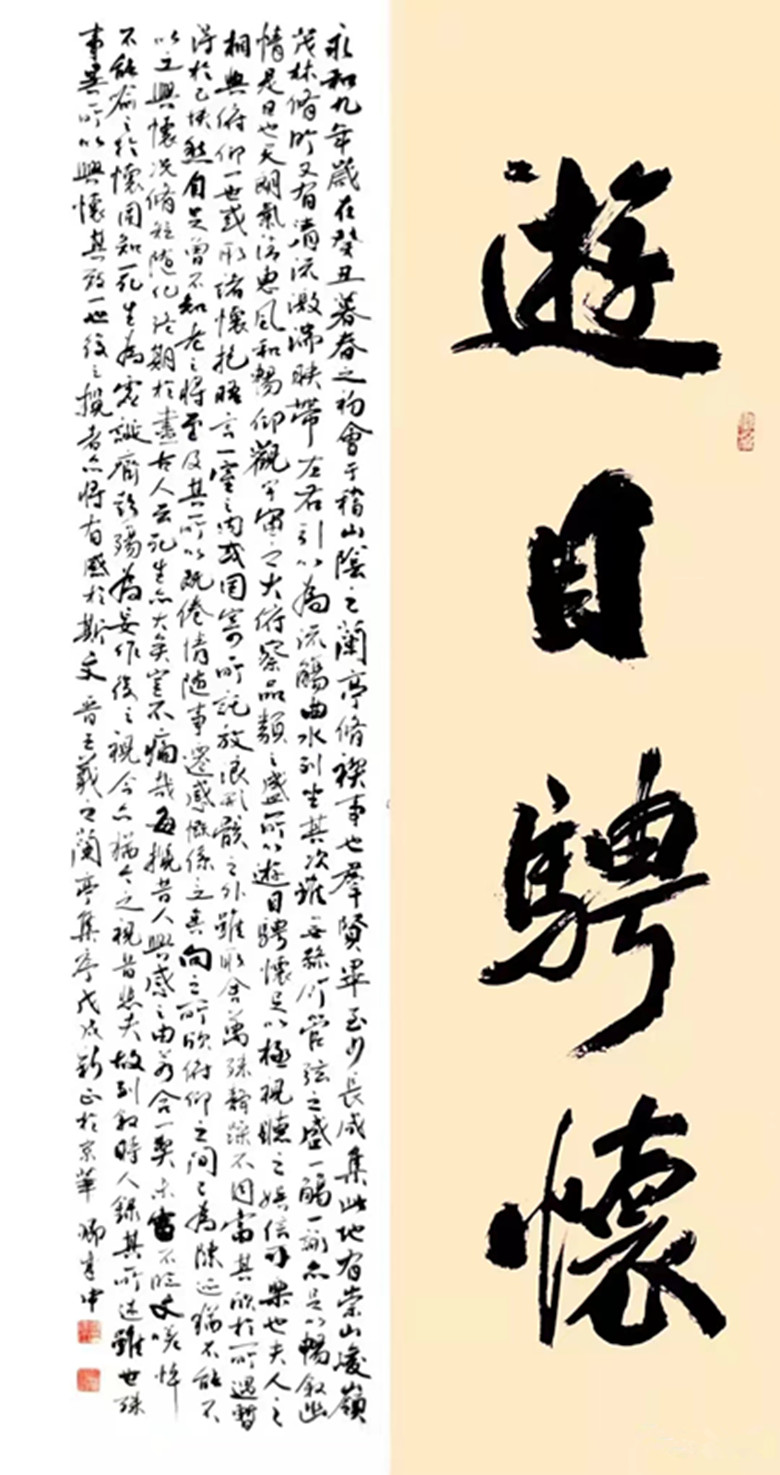 遊目騁懷
永和九年歲在癸丑暮春之初會于稽山陰之蘭亭脩禊事也羣賢畢至少長咸集此地有崇山峻嶺
茂林脩竹又有清流激湍映帶左右引以為流觴曲水列坐其次雖無絲竹管弦之盛一觴一詠亦足以暢敘幽
情是日也天朗氣清惠風和暢仰觀宇宙之大俯察品類之盛所以遊目騁懷足以極視聽之娛信可樂也夫人之
相與俯仰一世或取諸懷抱晤言一室之內或因寄所託放浪形骸之外雖取舍萬殊靜躁不同當其欣於所遇暫
得於己快然自足曾不知老之將至及其所以既倦情隨事遷感慨係之矣向之所欣俯仰之間已為陳迹猶不能不
以之興懷況脩短隨化終期於盡古人云死生亦大矣豈不痛哉每攬昔人興感之由若合一契未嘗不臨文嗟悼
不能喻之於懷固知一死生為虛誕齊彭殤為妄作後之視今亦猶今之視昔悲夫故列敘時人錄其所述雖世殊
事異所以興懷其致一也後之攬者亦將有感於斯文晉王羲之蘭亭集序戊戌新正於京華